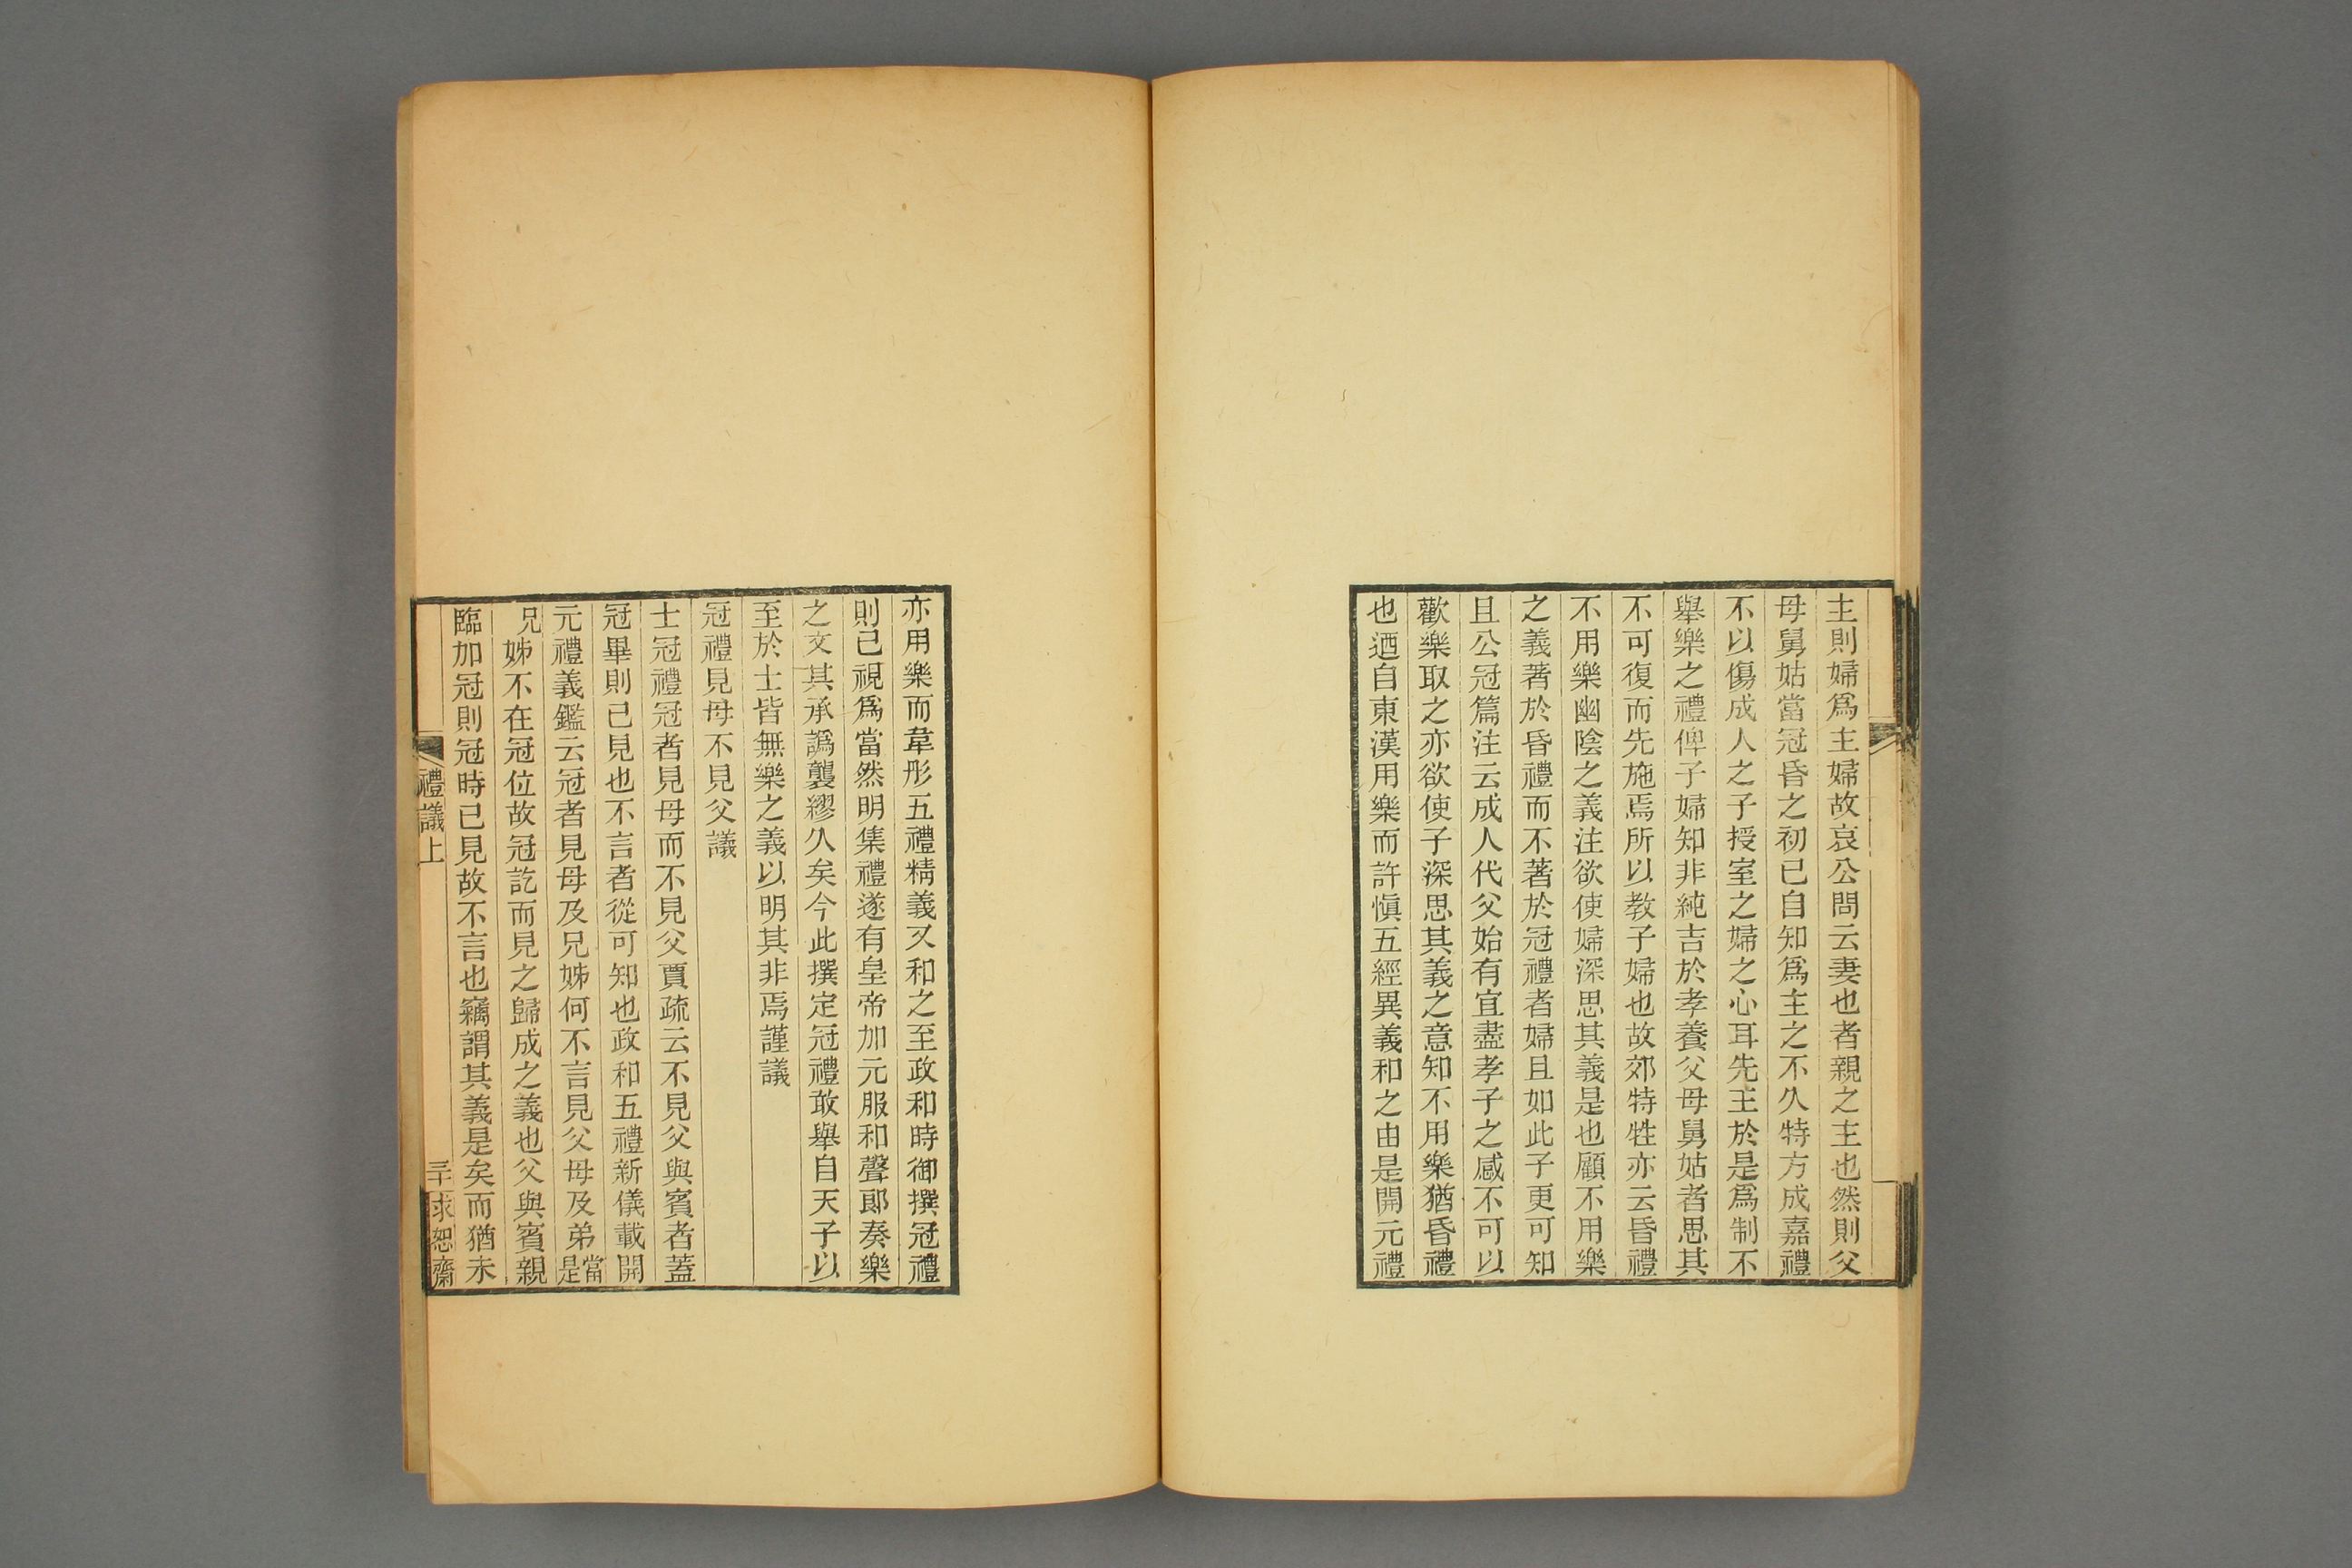 主則婦爲主婦故哀公問云妻也者親之主也然則父
母舅姑當冠昏之初已自知爲主之不久特方成嘉禮
不以傷成人之子授室之婦之心耳先王於是爲制不
舉樂之禮俾子婦知非純吉於孝養父母舅姑者思其
不可復而先施焉所以教子婦也故郊特牲亦云昏禮
不用樂幽陰之義注欲使婦深思其義是也顧不用樂
之義著於昏禮而不著於冠禮者婦且如此子更可知
且公冠篇注云成人代父始有宜盡孝子之感不可以
歡樂取之亦欲使子深思其義之意知不用樂猶昏禮
也迺自東漢用樂而許愼五經異義和之由是開元禮
亦用樂而韋彤五禮精義又和之至政和時御撰冠禮
則已視爲當然明集禮遂有皇帝加元服和聲郞奏樂
之文其承譌襲繆久矣今此撰定冠禮敢舉自天子以
至於士皆無樂之義以明其非焉謹議
冠禮見母不見父議
士冠禮冠者見母而不見父賈疏云不見父與賓者蓋
冠畢則已見也不言者從可知也政和五禮新儀載開
元禮義鑑云冠者見母及兄姊何不言見父母及弟當是
兄姊不在冠位故冠訖而見之歸成之義也父與賓親
臨加冠則冠時已見故不言也竊謂其義是矣而猶未
禮議上
三十
求恕齋